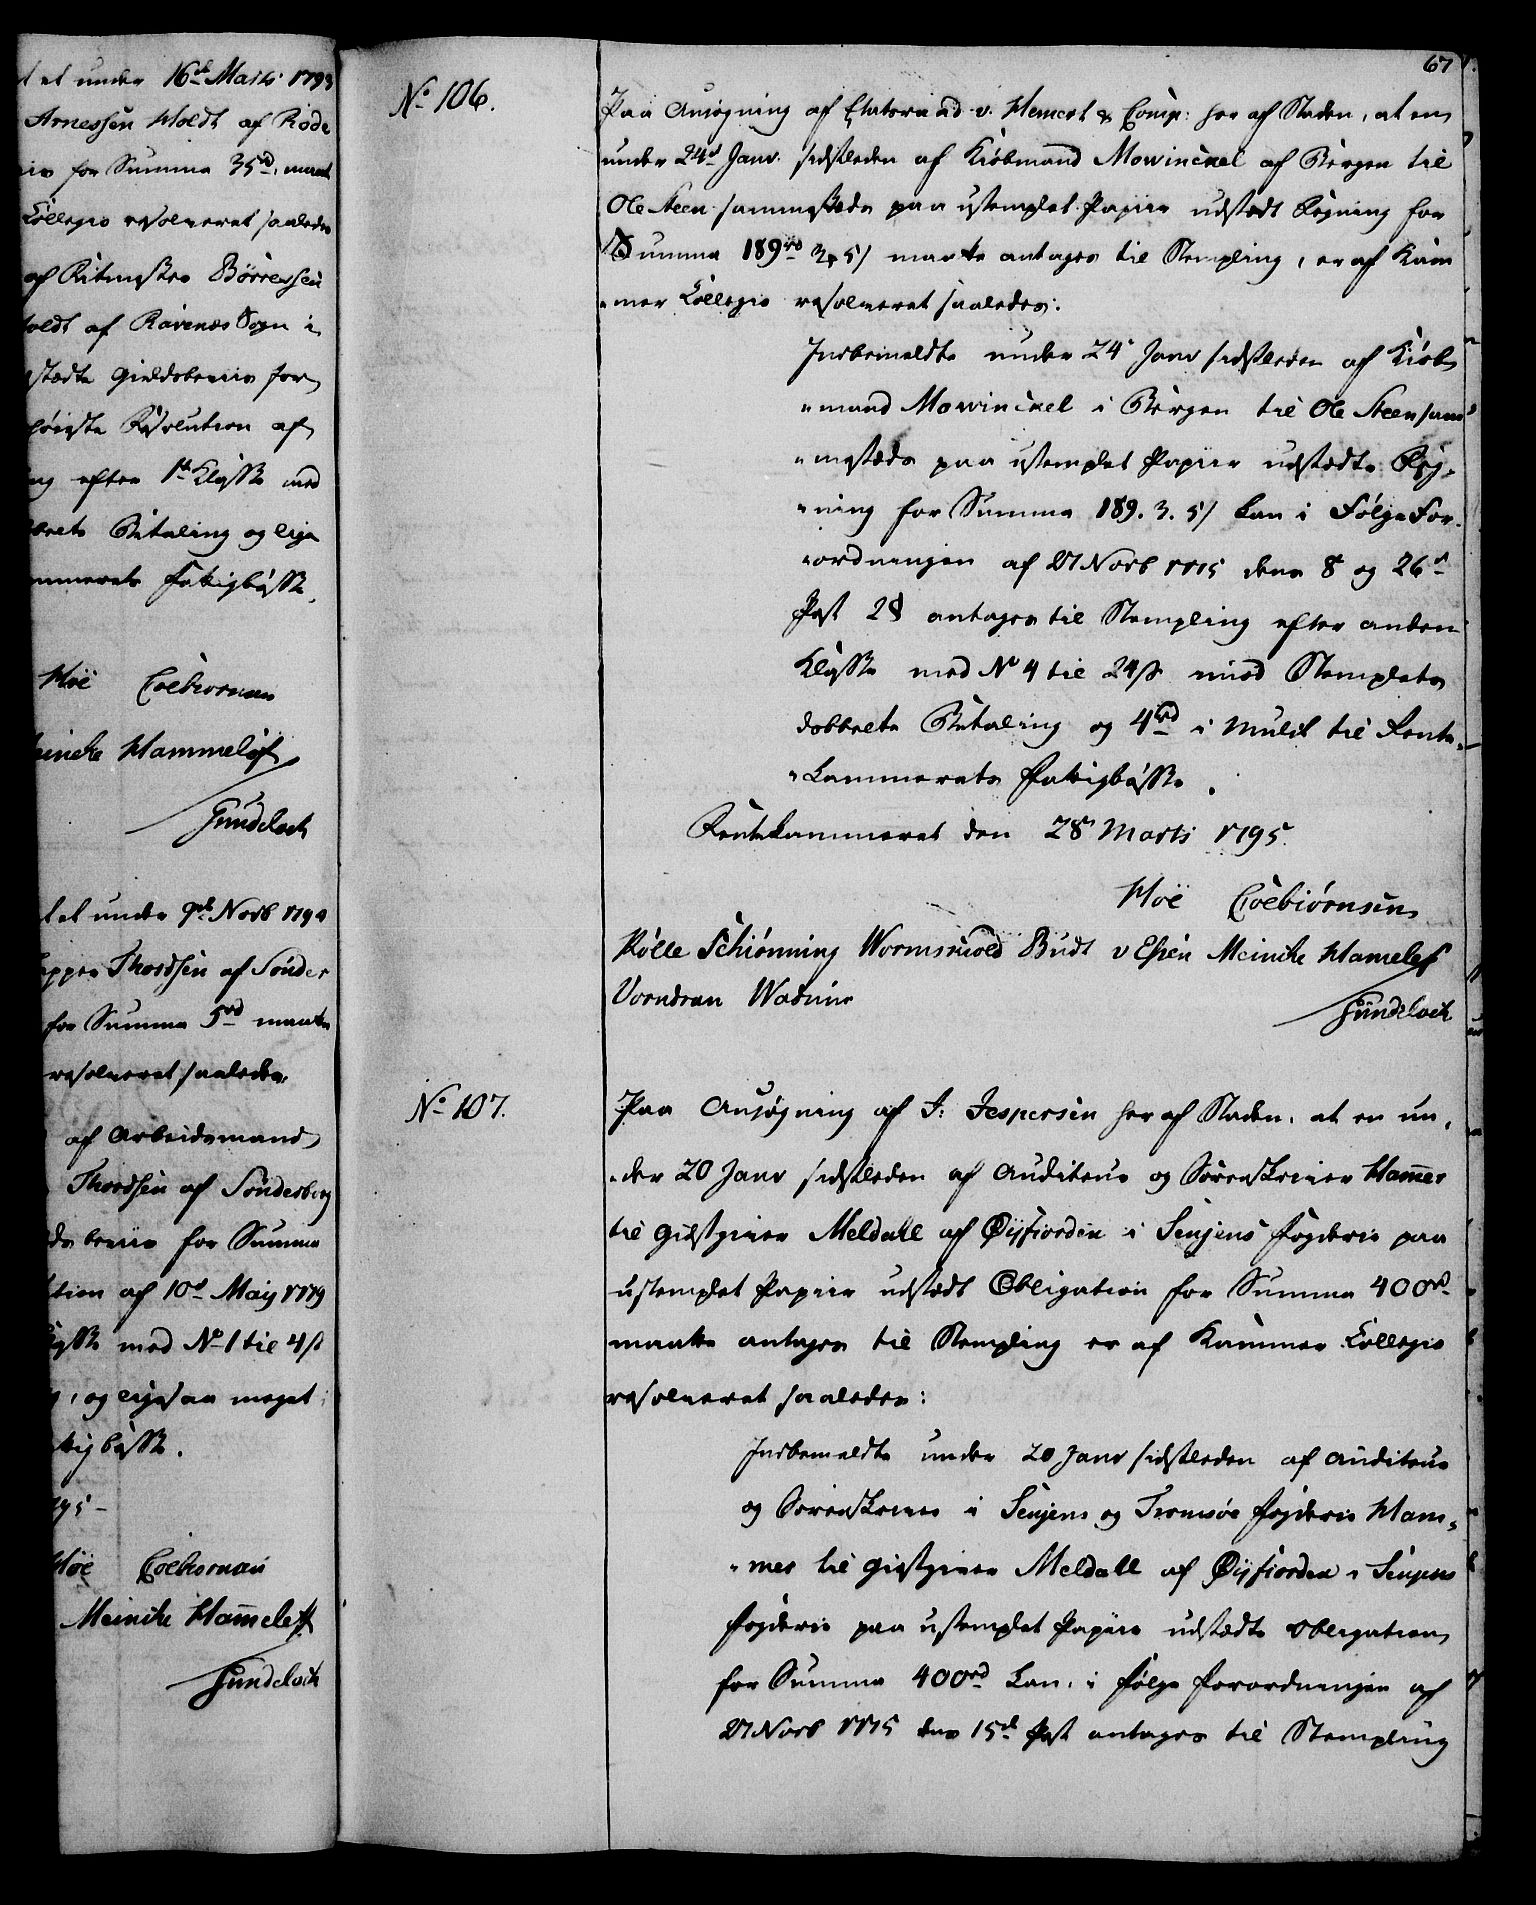 t et under 16d Marti 1793
Arnessen Holdt af Röde
for Summa 35rd, maatte
Collegio resolveret saaledes
af Ritmester Börresen
Holdt af Ravnæs Sogn i
stædte Gieldsbeviis for
höieste Resolution af
efter 1ste Classe med
Betaling og lige
kammerets Fattigbösse.
Höe Colbiørnsen
Meincke Hammeleff
Gundelach
t et under 9de Novb 1794
Thordsen af Sönder
for Summa 5rd maatte
resolveret saaledes
af Arbeidsmand
Thordsen af Sönderborg
beviis for Summa
af 10d Maij 1779
Classe med No 1 til 4 s
og ligesaa meget
bösse.
Höe Colbiørnsen
Meincke Hammeleff
Gundelach
67
No 106.
Paa Ansögning af Etatsraad v. Hemert & Comp: her af Staden, at en
under 24d Janv. sidstleden af Kiöbmand Mowinckel af Bergen til
Ole Steen sammestæds paa ustemplet Papiir udstædt Regning for
Summa 189rd 3 5 s maatte antages til Stempling, er af Kam
mer Collegio resolveret saaledes:
Indbemeldte under 24 Janv sidstleden af Kiöb
mand Mowinckel i Bergen til Ole Steen sam
mestæds paa ustemplet Papiir udstædte Reg-
ning for Summa 189. 3. 5 s kan i Fölge For-
ordningen af 27 Novb 1775 dens 8 og 26d
Post 28 antages til Stempling efter anden
Classe med No 4 til 24 s imod Stemplets
dobbelte Betaling og 4rd i Mulct til Rente-
kammerets Fattigbösse.
Rentekammeret den 28 Marti 1795.
Höe Colbiörnsen
Rölle Schiönning Wormskiold Budt v Essen Meincke Hameleff
Vorndran Wadum
Gundelach
No 107.
Paa Ansögning af J: Jespersen her af Staden, at en un,
der 20 Janv sidstleden af Auditeur og Sorenskriver Hammer
til Giestgiver Meldall af Öijfiorden i Senjens Fogderie paa
ustemplet Papiir udstædt Obligation for Summa 400rd
maatte antages til Stempling er af Kammer Collegio
resolveret saaledes:
Indbemeldte under 20 Janv sidstleden af Auditeur
og Sorenskriver i Senjens og Tromsöe Fogderie Ham-
mer til Giestgiver Meldall af Öijfiorden i Senjens
Fogderie paa ustemplet Papiir udstædte Obligation
for Summa 400rd kan, i Fölge Forordningen af
27 Novb 1775 dens 15d Post antages til Stempling